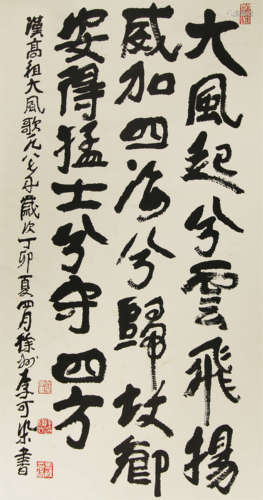 大風起兮雲飛揚
威加四海兮歸故鄉
安得猛士兮守四方
漢高祖大風歌一九八七年歲次丁卯夏四月徐州李可染書